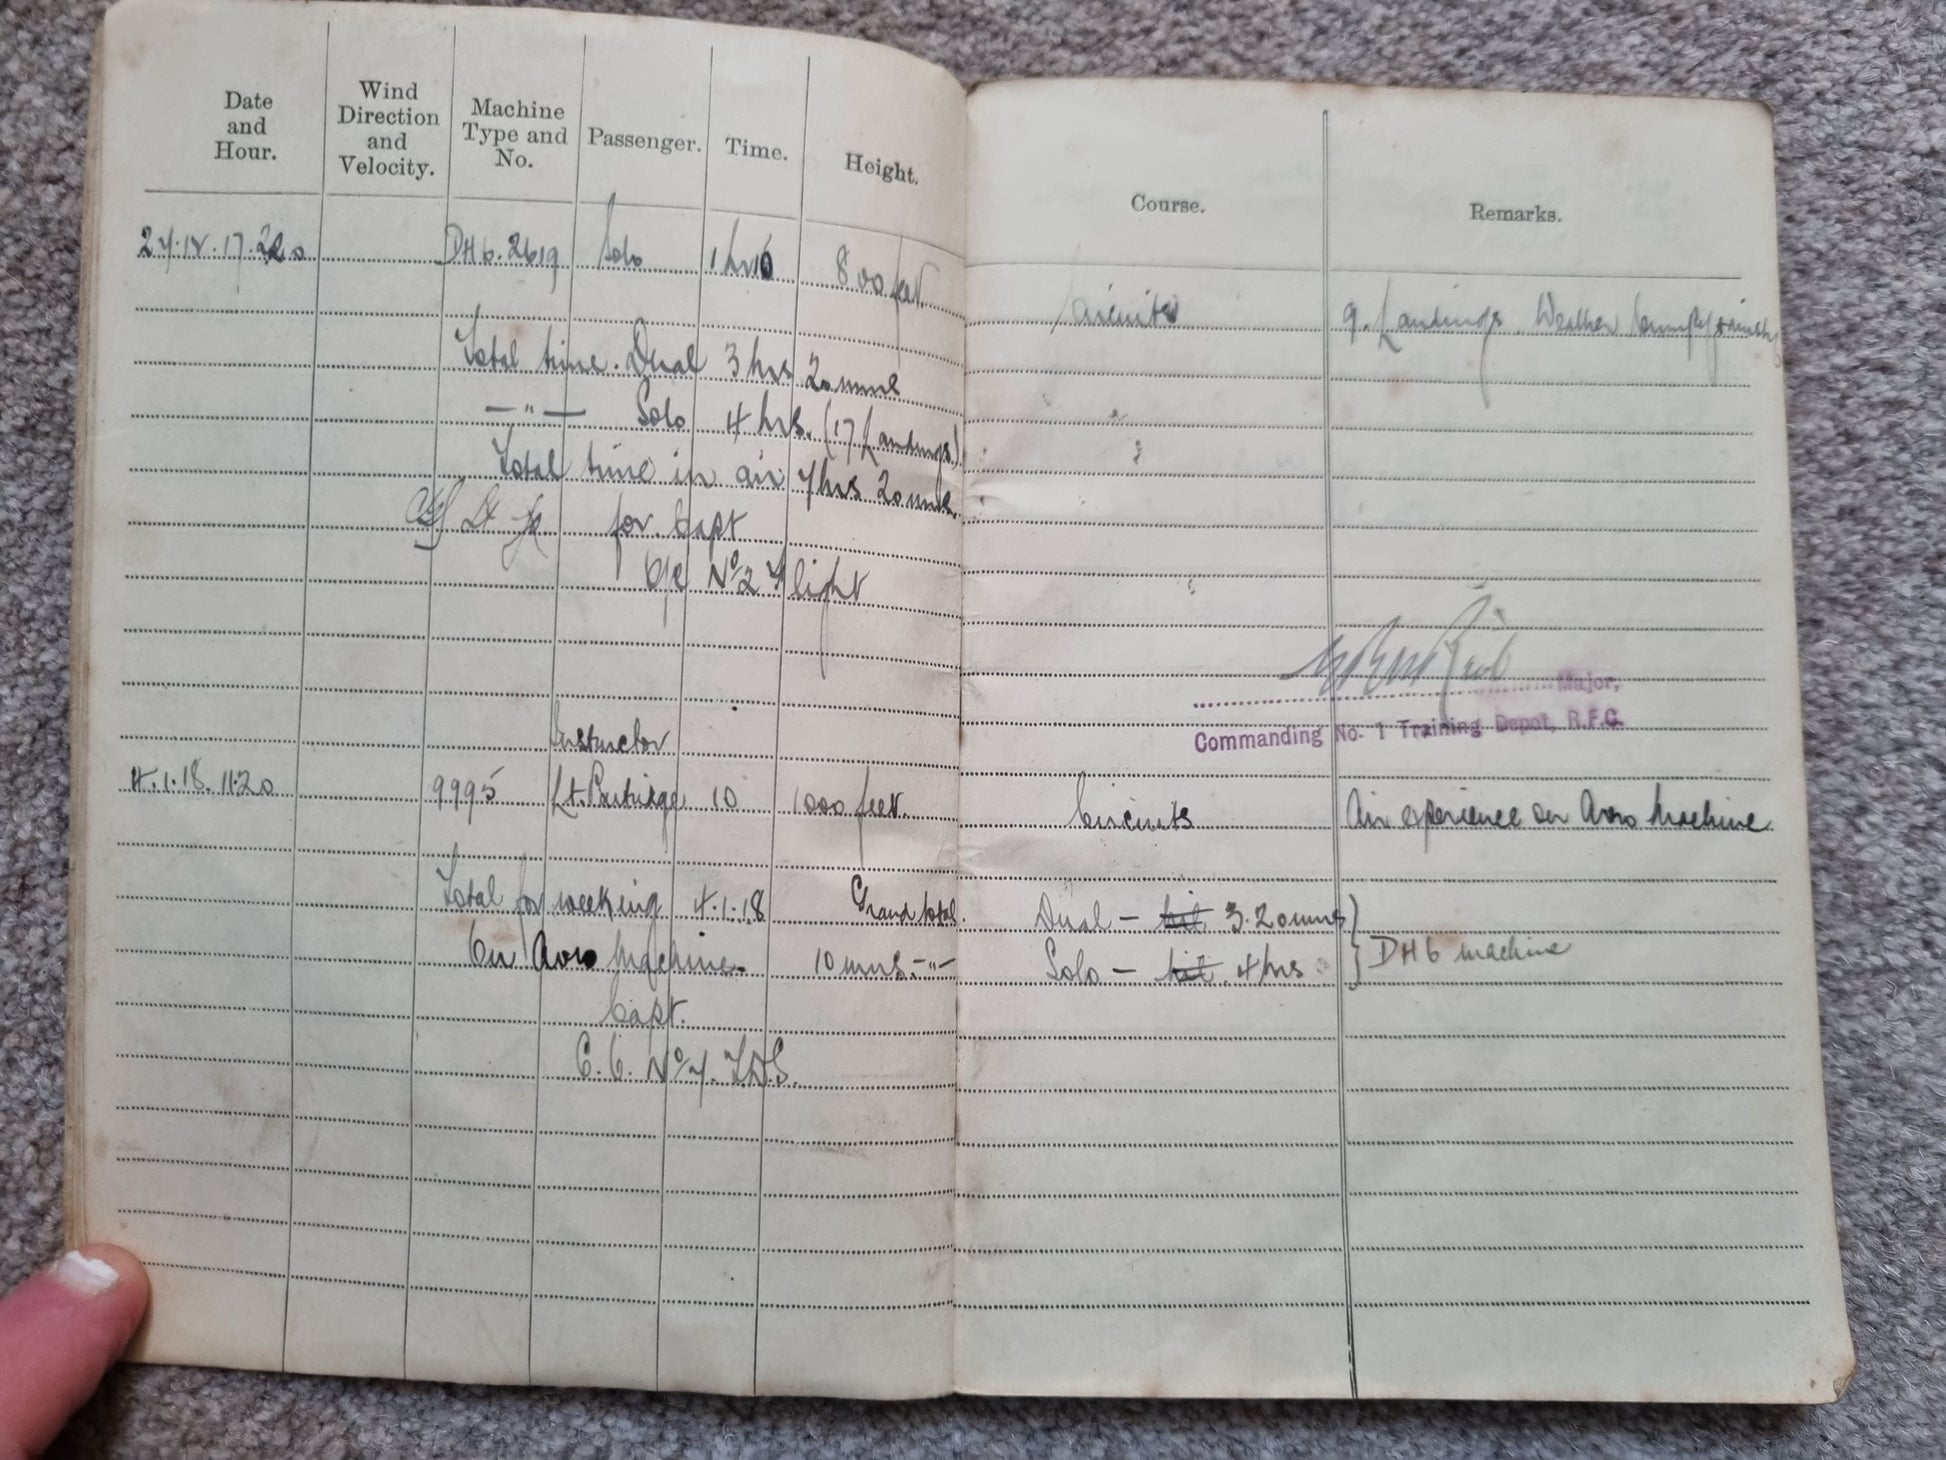 Date and Hour. Wind Direction and Velocity. Machine Type and No. Passenger. Time. Height. Course. Remarks.
DH6. 2619 Solo 1 hr 800 feet Circuits 9. Landings. Weather bumpy
Total time. Dual 3 hrs 20 mins
— " — Solo 4 hrs. (17 Landings)
Total time in air 7 hrs 20 mins.
for. Capt
No 2 Flight
Major,
Commanding No. 1 Training Depot, R.F.C.
Instructor
4.1.18. 11.20 9995 Lt. Partridge 10 1000 feet. Circuits Air experience on Avro Machine
Total for week ending 4.1.18 Grand total. Dual — 3.20 mins
On Avro Machine. 10 mins. - " - Solo — 4 hrs DH6 machine
Capt.
No 7. T.D.S.